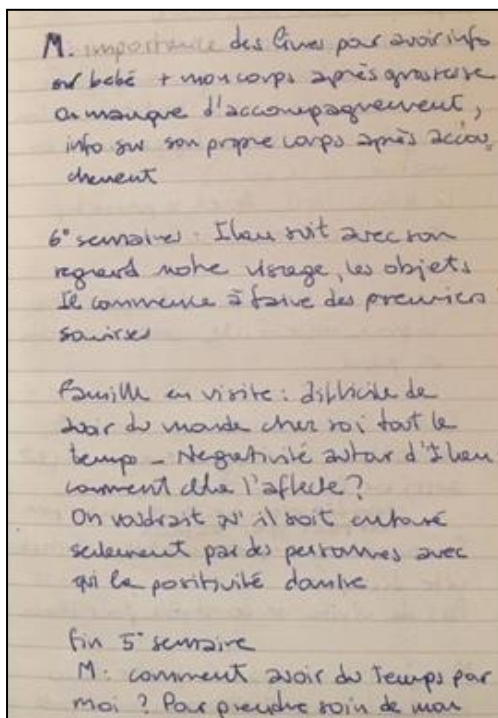 M. importance des livres pour avoir info
sur bébé + mon corps après grossesse
on manque d'accompagnement,
info sur son propre corps après accou
chement
6° semaine : Ilan suit avec son
regard notre visage, les objets
Il commence à faire des premiers
sourires
Famille en visite : difficile de
avoir du monde chez soi tout le
temps _ Negativité autour d'Ilan
comment cela l'affecte ?
On voudrait qu'il soit entouré
seulement par des personnes avec
qui la positivité
fin 5° semaine
M : comment avoir du temps par
moi ? Par prendre soin de mon